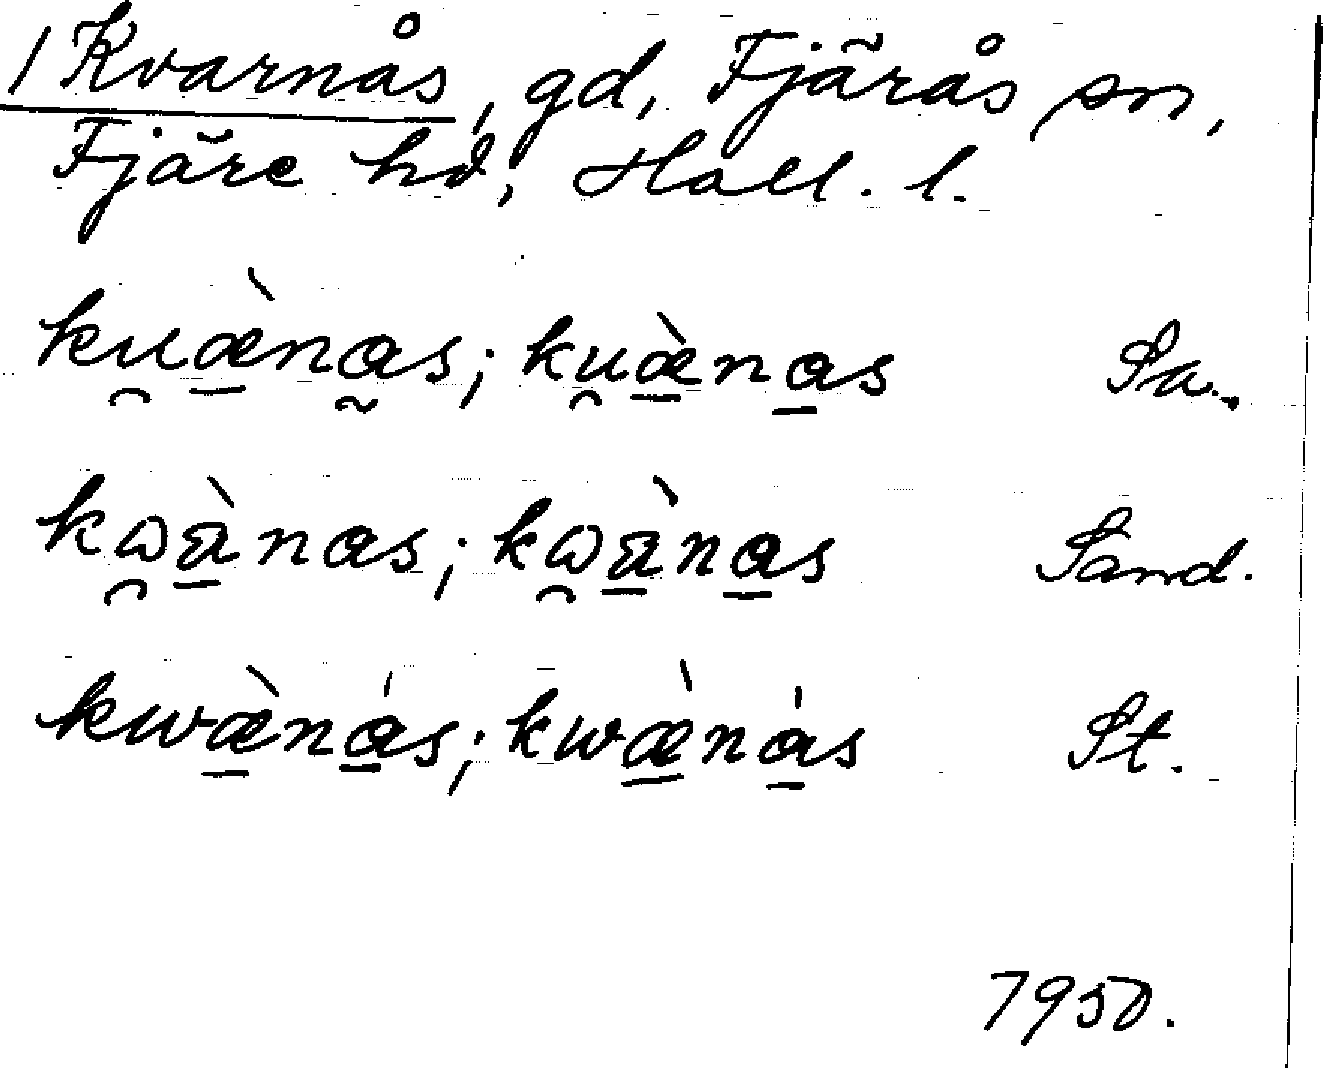 / Kvarnås, gd, Fjärås sn,
Fjäre hd, Hall. l.
ku̯æ̠̀na̰s; ku̯æ̠̀na̠s Sa.
kω̯à̠nas; kω̯à̠na̠s Sand.
kwæ̠̀ná̠s; kwæ̠̀ná̠s St.
7950.